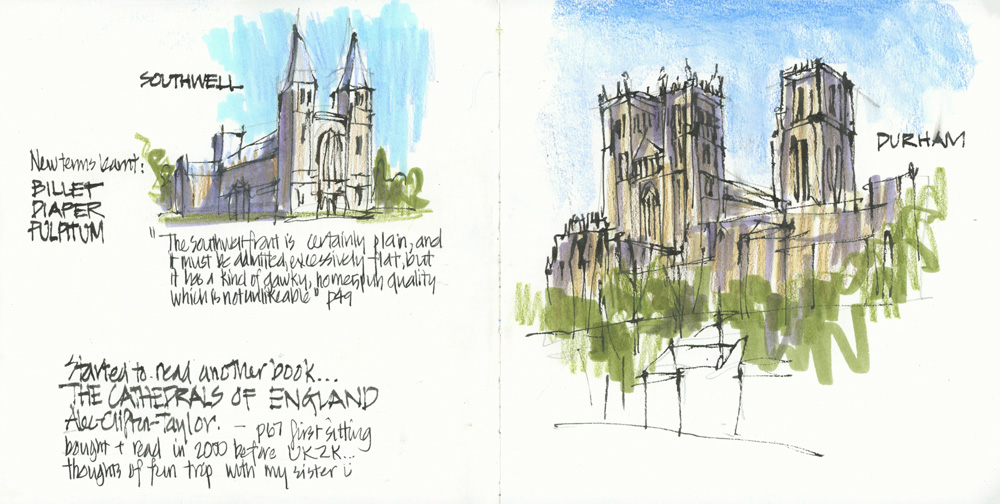 SOUTHWELL
New terms learnt:
BILLET
DIAPER
PULPITUM
"The Southwell front is certainly plain, and
it must be admitted, excessively flat, but
it has a kind of gawky, homespun quality
which is not unlikeable" p49
Started to read another book...
THE CATHEDRALS OF ENGLAND
Alec-Clifton-Taylor. - p67 first sitting
bought + read in 2000 before UK2K...
thoughts of fun trip with my sister ü
DURHAM